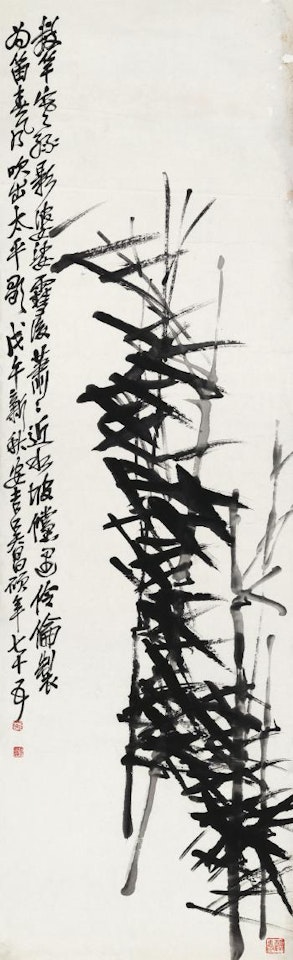 數竿寒綠影婆娑霜後蕭〻近水坡儻遇伶倫製
為笛春風吹出太平歌戊午新秋安吉吳昌碩年七十五